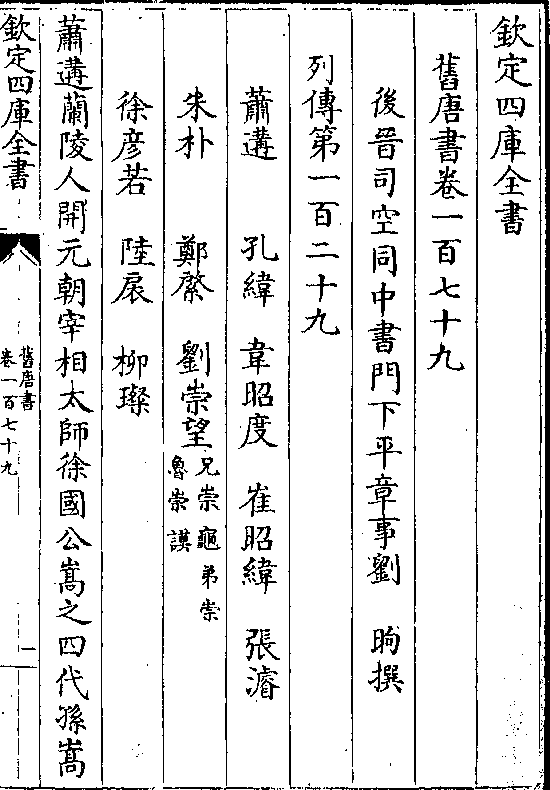 欽定四庫全書
舊唐書卷一百七十九
後晉司空同中書門下平章事劉 昫撰
列傳第一百二十九
蕭遘 孔緯 韋昭度 崔昭緯 張濬
朱朴 鄭綮 劉崇望兄崇龜弟崇
魯崇謨
徐彦若 陸扆 柳璨
蕭遘蘭陵人開元朝宰相太師徐國公嵩之四代孫嵩
欽定四庫全書
舊唐書
卷一百七十九
一